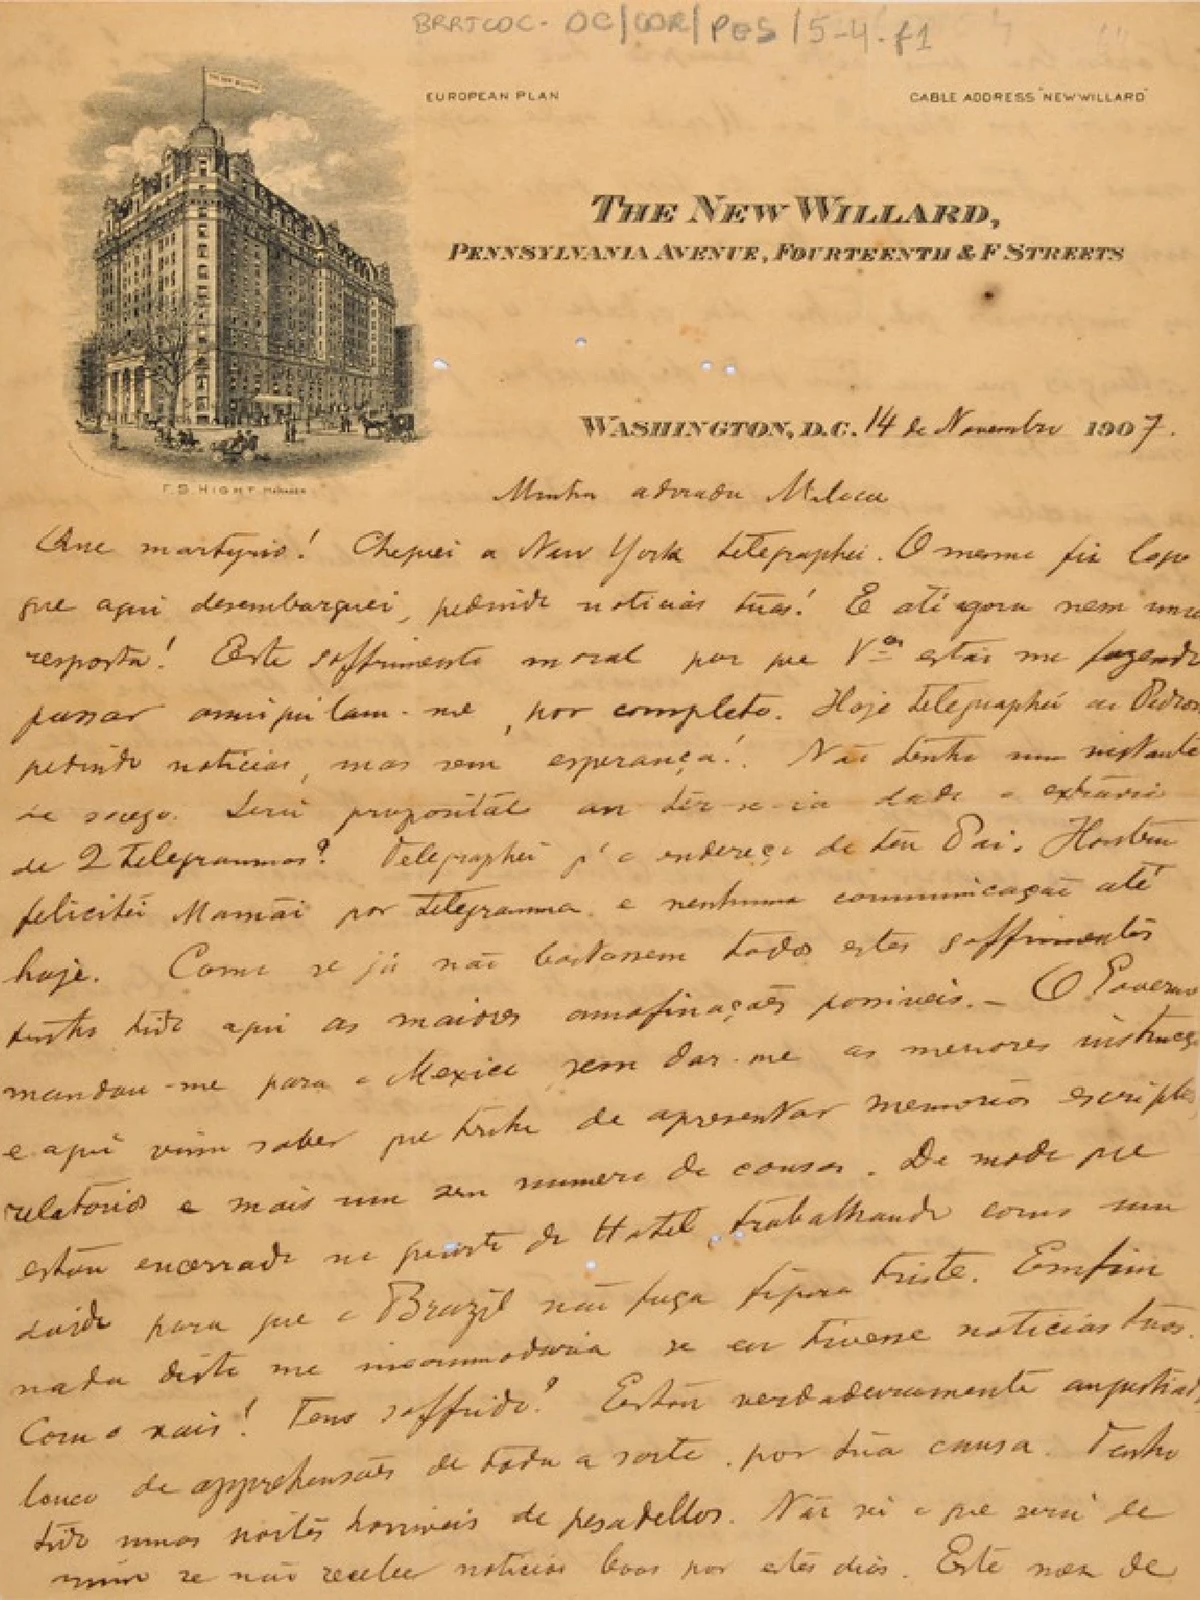 BRRJCOC - OC/COR/PES/5-4. f1
EUROPEAN PLAN
CABLE ADDRESS "NEWWILLARD"
THE NEW WILLARD
THE NEW WILLARD,
PENNSYLVANIA AVENUE, FOURTEENTH & F STREETS
WASHINGTON, D.C. 14 de Novembro 1907.
F. S. HIGHT MANAGER
Minha adorada Miloca
Que martyrio! Cheguei a New York telegraphei. O mesmo fiz logo
que aqui desembarquei, pedindo noticias tuas! E até agora nem uma
resposta! Este soffrimento moral por que Vcês estão me fazendo
passar aniquilam-me, por completo. Hoje telegraphei ao Pedro
pedindo noticias, mas sem esperança! Não tenho um instante
de socego. Será proposital ou ter-se-ia dado o extravio
de 2 telegrammas? Telegraphei p'a o endereço de teu Pai. Hontem
felicitei Mamãi por telegramma e nenhuma communicação até
hoje. Como se já não bastassem todos estes soffrimentos
tenho tido aqui as maiores amofinações possiveis. — O Governo
mandou-me para o Mexico sem dar-me as menores instrucç
e aqui vim saber que tinha de apresentar memorias escriptas
relatorios e mais um sem numero de cousas. De modo que
estou encerrado no quarto do Hotel trabalhando como um
doido para que o Brazil não faça figura triste. Emfim
nada disto me incommodaria se eu tivesse noticias tuas.
Como vais! Tens soffrido? Estou verdadeiramente angustiad
louco de apprehensões de toda a sorte por tua causa. Tenho
tido umas noites horriveis de pesadellos. Não sei o que será de
mim se não receber noticias boas por estes dias. Este mez de